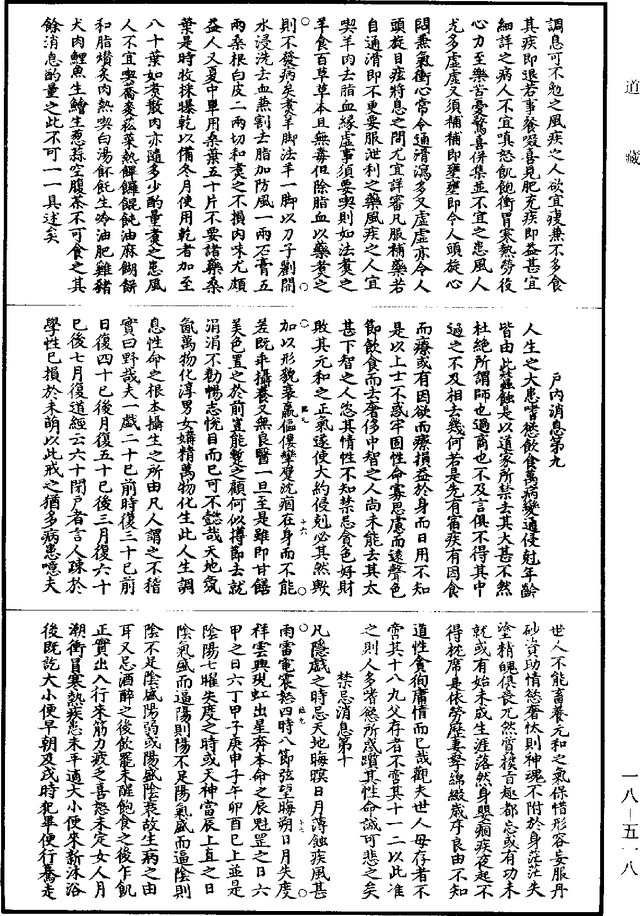 道藏
調息可不勉之風疾之人欲宜痩兼不多食
其疾即退若事餐啜喜見肥充疾即益甚宜
細詳之病人不宜嗔怒飢飽衝冒寒熱勞役
心力至樂旨憂驚喜併集並不宜之患風人
尤多虛虛又須補補即壅壅即令人頭旋心
悶兼氣衝心常令通滑瀉多又虛虛亦令人
頭旋目痃將息之間尤宜詳審凡服補藥若
自通滑即不更要服泄利之藥風疾之人宜
喫羊肉去脂血緣虛事須要喫則如法煑之
羊食百草草本且無毒但除脂血以藥煑之
則不發病矣煑羊脚法羊一脚以刀子劃開
水浸洗去血兼割去脂加防風一兩石膏五
兩桑根白皮二兩切和煑之不損肉味尤頗
益人又夏中單用桑葉五十片不要諸藥桑
葉是時收採曝乾以備冬月使用乾者加至
八十葉如煑散肉亦隨多少酌量煑之患風
人不宜喫蕎麥松菜熱餺饠餛飩油麻餬餅
和脂爦炙肉熱喫白湯飥飥生冷油肥雞豬
犬肉鯉魚生鱠生葱蒜空腹茶不可食之其
餘消息酌量之此不可一一具述矣
戶內消息第九
人生之大患嗜慾飲食萬病變通侵尅年齡
皆由此蠧蝕是以道家所禁去其大甚不然
杜絶所謂師也過商也不及言俱不得其中
過之不及相去幾何若是先有宿疾有因食
而療或有因欲而療損益於身而日用不知
是以上士不惑牢固性命寡思慮而逺聲色
節飲食而去奢侈中智之人尚未能去其太
甚下智之人恣其情性不知禁忌食色好財
敗其元和之正氣遂使大約侵剋必其然歟
加以形貌衰羸傴僂攣躄沈痼在身而不能
差既乖攝養又無良醫一旦至是雖即甘饍
美色置之於前豈能蹔之顧何似撙節去就
涓涓不勸暢志恱目而已可不懿哉天地氤
氳萬物化淳男女媾精萬物化生此人生調
息性命之根本攝生之所由凡人謂之不稽
實曰野哉夫一戲二十已前時復三十已前
日復四十已後月復五十已後三月復六十
已後七月復道經云六十閉戶者言人踈於
學性已損於未萌以此戒之猶多病患噫夫
世人不能畜養元和之氣保惜形容妄服丹
砂資助情慾奢佚則神魂不附於身茫茫失
塗精魄俱喪兀然質樸旨趣都忘或有功未
就或有始未成生涯落然身嬰痼疾夜起不
得枕席具依勞歷妻孥綿綴歲序良由不知
道性貪徇庸情而已哉觀夫世人母存者不
啻其十八九父存者不啻其十一二以此准
之則人多嗜慾所惑躓其性命誠可悲之矣
禁忌消息第十
凡隱戲之時忌天地晦暝日月薄蝕疾風甚
雨雷電震熱四時八節弦望晦朔日月失度
祥雲興現虹出星奔本命之辰魁罡之日六
甲之日六丁甲子庚申子午卯酉已上並是
陰陽七曜失度之時或天神當辰上直之日
陰氣盛而逼陽則陽不足陽氣盛而逼陰則
陰不足陰盛陽弱或陽盛陰衰故生病之由
耳又忌酒醉之後飲罷未醒飽食之後乍飢
正實出入行來筋力疲乏喜怒未定女人月
潮衝冒寒熱疾患未平適大小便來新沐浴
後既訖大小便早朝及戌時犯畢便行驀走
一八—五一八